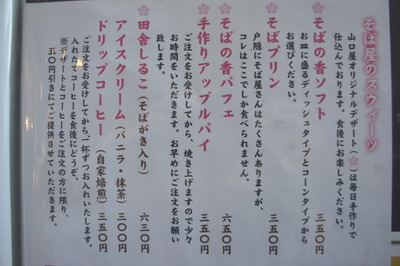 そば屋のスウィーツ
山口屋オリジナルデザート(✿)は毎日手作りで
仕込んでおります。食後にお楽しみください。
✿そばの香ソフト 三五〇円
お皿に盛るディッシュタイプとコーンタイプから
お選びください。
✿そばプリン 三五〇円
戸隠にそば屋さんはたくさんありますが、
コレはここでしか食べられません。
✿そばの香パフェ 六五〇円
✿手作りアップルパイ 三五〇円
ご注文をお受けしてから、焼き上げますので少々
お時間をいただきます。お早めにご注文をお願い
致します。
✿田舎しるこ(そばがき入り) 六三〇円
アイスクリーム(バニラ・抹茶) 三〇〇円
ドリップコーヒー(自家焙煎) 三五〇円
ご注文をお受けしてから一杯ずつお入れいたします。
入れたてコーヒーを食後にどうぞ。
※デザートとコーヒーをご注文の方に限り、
五〇円引きにてご提供させていただきます。